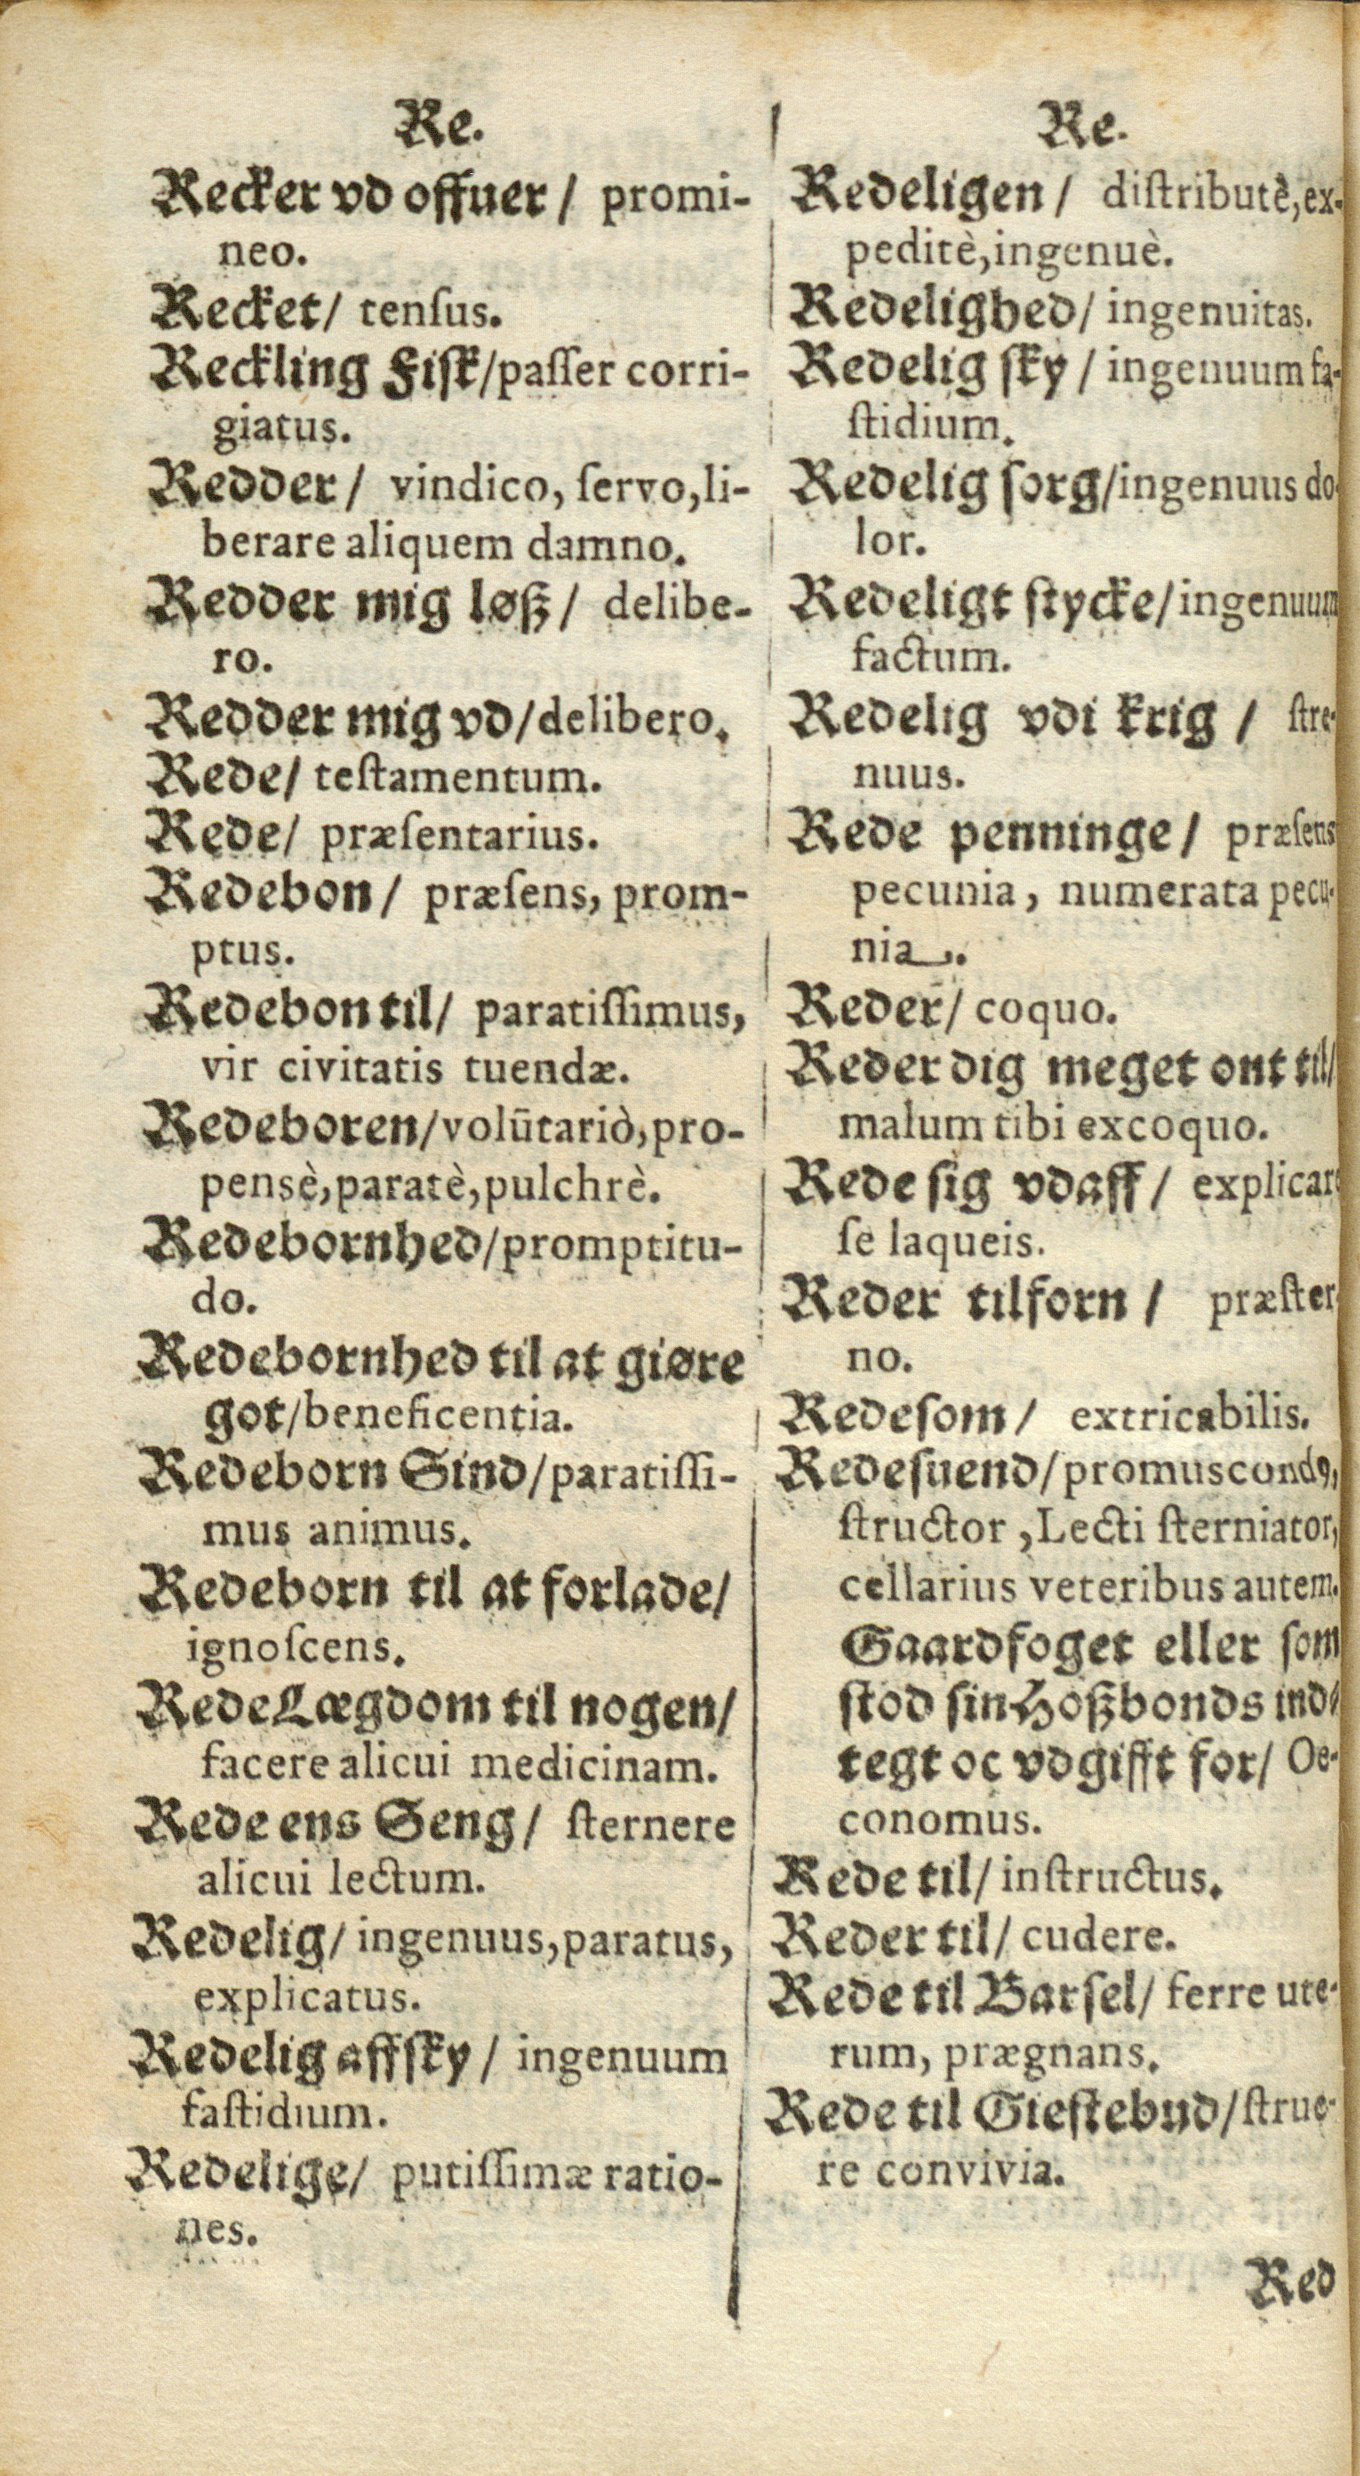 Re.
Recker vd offuer / promi-
neo.
Recket/ tenſus.
Reckling Fiſk/paſſer corri-
giatus.
Redder / vindico, ſervo,li-
berare aliquem damno.
Redder mig løß / delibe-
ro.
Redder mig vd/delibero.
Rede/ teſtamentum.
Rede/ præſentarius.
Redebon / præſens, prom-
ptus.
Redebon til/ paratiſſimus,
vir civitatis tuendæ.
Redeboren/volūtariò,pro-
pensè,paratè,pulchrè.
Redebornhed/promptitu-
do.
Redebornhed til at giøre
got/beneficentia.
Redeborn Sind/paratiſſi-
mus animus.
Redeborn til at forlade/
ignoſcens.
Rede Lægdom til nogen/
facere alicui medicinam.
Rede ens Seng / ſternere
alicui lectum.
Redelig/ ingenuus,paratus,
explicatus.
Redelig affſky / ingenuum
faſtidium.
Redelige/ putiſſimæ ratio-
nes.
Re.
Redeligen / diſtributè,ex-
peditè,ingenuè.
Redelighed/ ingenuitas.
Redelig ſky / ingenuum fa-
ſtidium.
Redelig ſorg/ingenuus do-
lor.
Redeligt ſtycke/ingenuum
factum.
Redelig vdi krig / ſtre-
nuus.
Rede penninge / præſens
pecunia, numerata pecu-
nia.
Reder/ coquo.
Reder dig meget ont til/
malum tibi excoquo.
Rede ſig vdaff / explicare
ſe laqueis.
Reder tilforn / præſter
no.
Redeſom / extricabilis.
Redeſuend/promuscondꝰ,
ſtructor ,Lecti ſterniator,
cellarius veteribus autem.
Gaardfoget eller ſom
ſtod ſin Hoßbonds ind-
tegt oc vdgifft for/ Oe-
conomus.
Rede til/ inſtructus.
Reder til/ cudere.
Rede til Barſel/ ferre ute-
rum, prægnans.
Rede til Gieſtebud/ſtrue-
re convivia.
Red